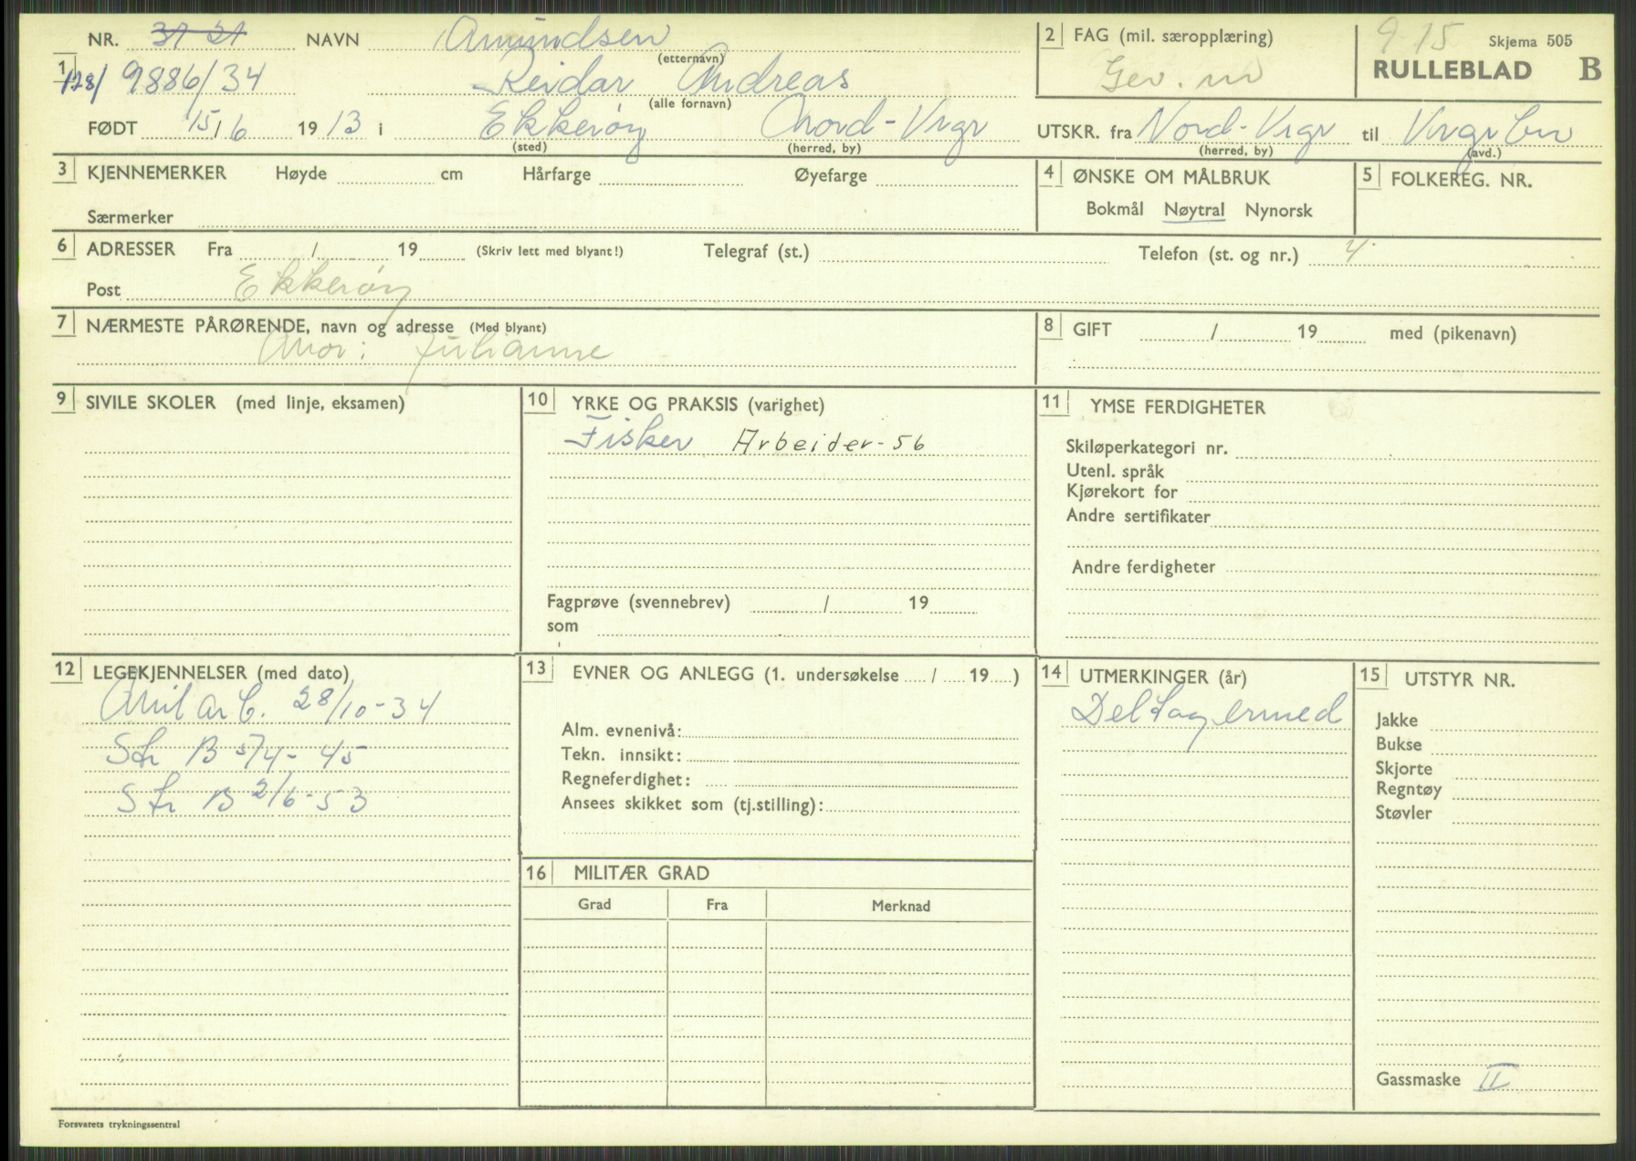 NR. 31 21 NAVN Amundsen
(etternavn)
1 128/ 9886/34 Reidar Andreas
(alle fornavn)
FØDT 15/6 1913 i Ekkerøy Nord-Vrgr
(sted) (herred, by)
2 FAG (mil. særopplæring)
Gev. m
915 Skjema 505
RULLEBLAD B
UTSKR. fra Nord-Vrgr til Vrgr bn
(herred, by) (avd.)
3 KJENNEMERKER Høyde cm Hårfarge Øyefarge
Særmerker
4 ØNSKE OM MÅLBRUK
Bokmål Nøytral Nynorsk
5 FOLKEREG. NR.
6 ADRESSER Fra / 19 (Skriv lett med blyant!) Telegraf (st.) Telefon (st. og nr.) 4
Post Ekkerøy
7 NÆRMESTE PÅRØRENDE, navn og adresse (Med blyant)
Mor: Julianne
8 GIFT / 19 med (pikenavn)
9 SIVILE SKOLER (med linje, eksamen)
10 YRKE OG PRAKSIS (varighet)
Fisker Arbeider-56
Fagprøve (svennebrev) / 19
som
11 YMSE FERDIGHETER
Skiløperkategori nr.
Utenl. språk
Kjørekort for
Andre sertifikater
Andre ferdigheter
12 LEGEKJENNELSER (med dato)
Mil ar C. 28/10-34
Str B 5/4-45
Str B 2/6-53
13 EVNER OG ANLEGG (1. undersøkelse / 19 )
Alm. evnenivå:
Tekn. innsikt:
Regneferdighet:
Ansees skikket som (tj.stilling):
14 UTMERKINGER (år)
Deltagermed
15 UTSTYR NR.
Jakke
Bukse
Skjorte
Regntøy
Støvler
Gassmaske II
16 MILITÆR GRAD
Grad Fra Merknad
Forsvarets trykningssentral